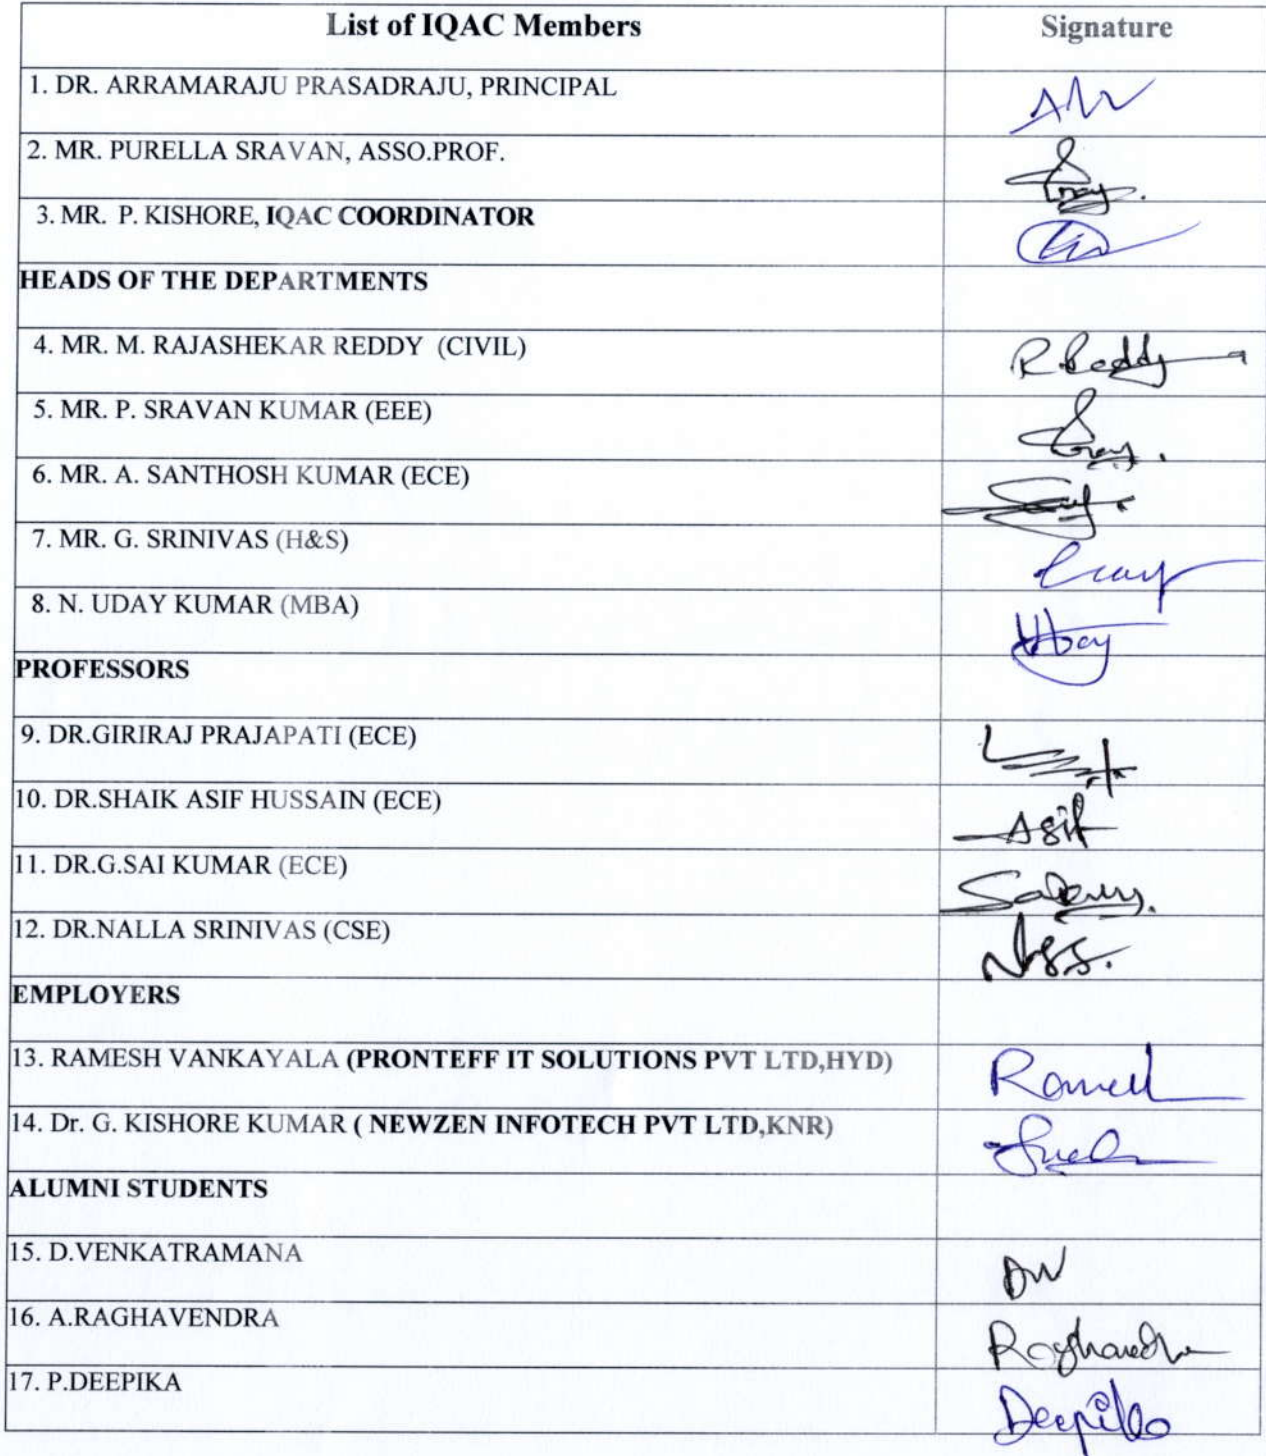 List of IQAC Members Signature
1. DR. ARRAMARAJU PRASADRAJU, PRINCIPAL
2. MR. PURELLA SRAVAN, ASSO.PROF.
3. MR. P. KISHORE, IQAC COORDINATOR
HEADS OF THE DEPARTMENTS
4. MR. M. RAJASHEKAR REDDY (CIVIL) R Reddy
5. MR. P. SRAVAN KUMAR (EEE)
6. MR. A. SANTHOSH KUMAR (ECE)
7. MR. G. SRINIVAS (H&S)
8. N. UDAY KUMAR (MBA)
PROFESSORS
9. DR.GIRIRAJ PRAJAPATI (ECE)
10. DR.SHAIK ASIF HUSSAIN (ECE) Asif
11. DR.G.SAI KUMAR (ECE)
12. DR.NALLA SRINIVAS (CSE)
EMPLOYERS
13. RAMESH VANKAYALA (PRONTEFF IT SOLUTIONS PVT LTD,HYD)
14. Dr. G. KISHORE KUMAR ( NEWZEN INFOTECH PVT LTD,KNR)
ALUMNI STUDENTS
15. D.VENKATRAMANA
16. A.RAGHAVENDRA
17. P.DEEPIKA